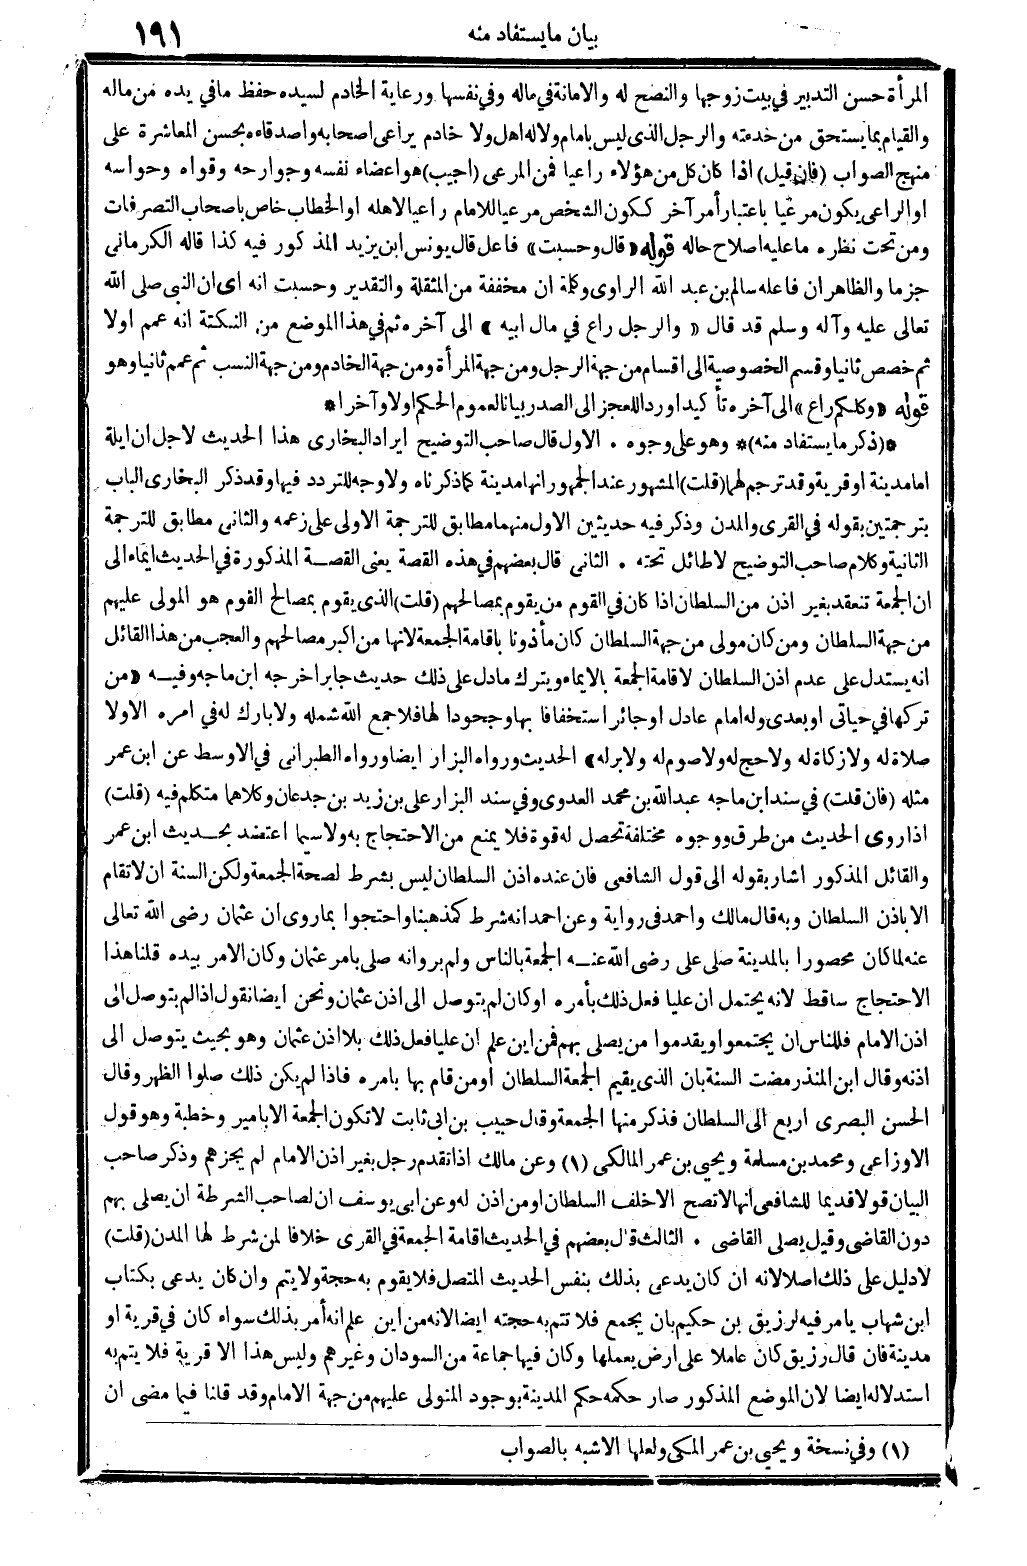 بيان ما يستفاد منه
١٩١
المرأة حسن التدبير في بيت زوجها والنصح له والامانة في ماله وفي نفسها ورعاية الخادم لسيده حفظ ما في يده من ماله
والقيام بما يستحق من خدمته والرجل الذى ليس بامام ولا له اهل ولا خادم يراعى اصحابه واصدقاءه بحسن المعاشرة على
منهج الصواب (فان قيل) اذا كان كل من هؤلاء راعيا فمن المرعى (اجيب) هو اعضاء نفسه وجوارحه وقواه وحواسه
او الراعى يكون مرعيا باعتبار أمر آخر ككون الشخص مرعيا للامام راعيا لاهله او الخطاب خاص باصحاب التصرفات
ومن تحت نظره ما عليه اصلاح حاله قوله «قال وحسبت» فاعل قال يونس ابن يزيد المذكور فيه كذا قاله الكرمانى
جزما والظاهر ان فاعله سالم بن عبد الله الراوى وكلمة ان مخففة من المثقلة والتقدير وحسبت انه اى ان النبى صلى الله
تعالى عليه وآله وسلم قد قال « والرجل راع في مال ابيه » الى آخره ثم في هذا الموضع من النكتة انه عمم اولا
ثم خصص ثانيا وقسم الخصوصية الى اقسام من جهة الرجل ومن جهة المرأة ومن جهة الخادم ومن جهة النسب ثم عمم ثانيا وهو
قوله «وكلكم راع» الى آخره تأكيدا وردا للعجز الى الصدر بيانا لعموم الحكم اولا وآخرا *
*(ذكر ما يستفاد منه)* وهو على وجوه . الاول قال صاحب التوضيح ايراد البخارى هذا الحديث لاجل ان ايلة
اما مدينة او قرية وقد ترجم لهما (قلت) المشهور عند الجمهور انها مدينة كما ذكرناه ولا وجه للتردد فيها وقد ذكر البخارى الباب
بترجمتين بقوله في القرى والمدن وذكر فيه حديثين الاول منهما مطابق للترجمة الاولى على زعمه والثانى مطابق للترجمة
الثانية وكلام صاحب التوضيح لا طائل تحته . الثانى قال بعضهم في هذه القصة يعنى القصة المذكورة في الحديث ايماء الى
ان الجمعة تنعقد بغير اذن من السلطان اذا كان في القوم من يقوم بمصالحهم (قلت) الذى يقوم بمصالح القوم هو المولى عليهم
من جهة السلطان ومن كان مولى من جهة السلطان كان مأذونا باقامة الجمعة لانها من اكبر مصالحهم والعجب من هذا القائل
انه يستدل على عدم اذن السلطان لاقامة الجمعة بالايماء ويترك ما دل على ذلك حديث جابر اخرجه ابن ماجه وفيه «من
تركها في حياتى او بعدى وله امام عادل او جائر استخفافا بها وجحودا لها فلا جمع الله شمله ولا بارك له في امره الا ولا
صلاة له ولا زكاة له ولا حج له ولا صوم له ولا بر له» الحديث ورواه البزار ايضا ورواه الطبرانى في الاوسط عن ابن عمر
مثله (فان قلت) في سند ابن ماجه عبد الله بن محمد العدوى وفي سند البزار على بن زيد بن جدعان وكلاهما متكلم فيه (قلت)
اذا روى الحديث من طرق ووجوه مختلفة تحصل له قوة فلا يمنع من الاحتجاج به ولاسيما اعتضد بحديث ابن عمر
والقائل المذكور اشار بقوله الى قول الشافعى فان عنده اذن السلطان ليس بشرط لصحة الجمعة ولكن السنة ان لا تقام
الا باذن السلطان وبه قال مالك واحمد في رواية وعن احمد انه شرط كمذهبنا واحتجوا بما روى ان عثمان رضى الله تعالى
عنه لما كان محصورا بالمدينة صلى على رضى الله عنه الجمعة بالناس ولم يرو انه صلى بامر عثمان وكان الامر بيده قلنا هذا
الاحتجاج ساقط لانه يحتمل ان عليا فعل ذلك بأمره او كان لم يتوصل الى اذن عثمان ونحن ايضا نقول اذا لم يتوصل الى
اذن الامام فللناس ان يجتمعوا ويقدموا من يصلى بهم فمن اين علم ان عليا فعل ذلك بلا اذن عثمان وهو بحيث يتوصل الى
اذنه وقال ابن المنذر مضت السنة بان الذى يقيم الجمعة السلطان او من قام بها بامره فاذا لم يكن ذلك صلوا الظهر وقال
الحسن البصرى اربع الى السلطان فذكر منها الجمعة وقال حبيب بن ابى ثابت لا تكون الجمعة الا بامير وخطبة وهو قول
الاوزاعى ومحمد بن مسلمة ويحيى بن عمر المالكى (١) وعن مالك اذا تقدم رجل بغير اذن الامام لم يجزهم وذكر صاحب
البيان قولا قديما للشافعى أنها لا تصح الا خلف السلطان او من اذن له وعن ابى يوسف ان لصاحب الشرطة ان يصلى بهم
دون القاضى وقيل يصلى القاضى . الثالث قال بعضهم في الحديث اقامة الجمعة في القرى خلافا لمن شرط لها المدن (قلت)
لا دليل على ذلك اصلا لانه ان كان يدعى بذلك بنفس الحديث المتصل فلا يقوم به حجة ولا يتم وان كان يدعى بكتاب
ابن شهاب يامر فيه لرزيق بن حكيم بان يجمع فلا تتم به حجته ايضا لانه من اين علم انه أمر بذلك سواء كان في قرية او
مدينة فان قال رزيق كان عاملا على ارض يعملها وكان فيها جماعة من السودان وغيرهم وليس هذا الا قرية فلا يتم به
استدلاله ايضا لان الموضع المذكور صار حكمه حكم المدينة بوجود المتولى عليهم من جهة الامام وقد قلنا فيما مضى ان
(١) وفي نسخة ويحيى بن عمر المكى ولعلها الاشبه بالصواب